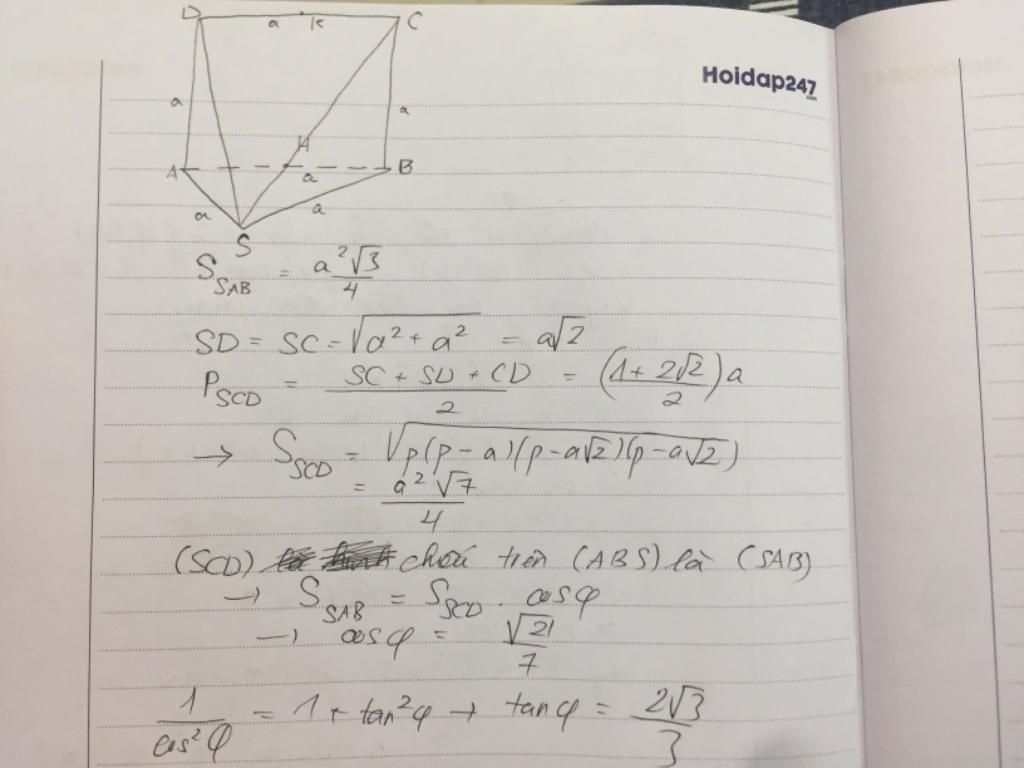 D a K C
Hoidap247
.com
a a
H
A a B
a a
S
S_SAB = a²√3/4
SD = SC = √(a² + a²) = a√2
P_SCD = (SC + SD + CD)/2 = ((1 + 2√2)/2) a
→ S_SCD = √(p(p - a)(p - a√2)(p - a√2))
= a²√7/4
(SCD) chiếu trên (ABS) là (SAB)
→ S_SAB = S_SCD . cosφ
→ cosφ = √21/7
1/cos²φ = 1 + tan²φ → tanφ = 2√3/3